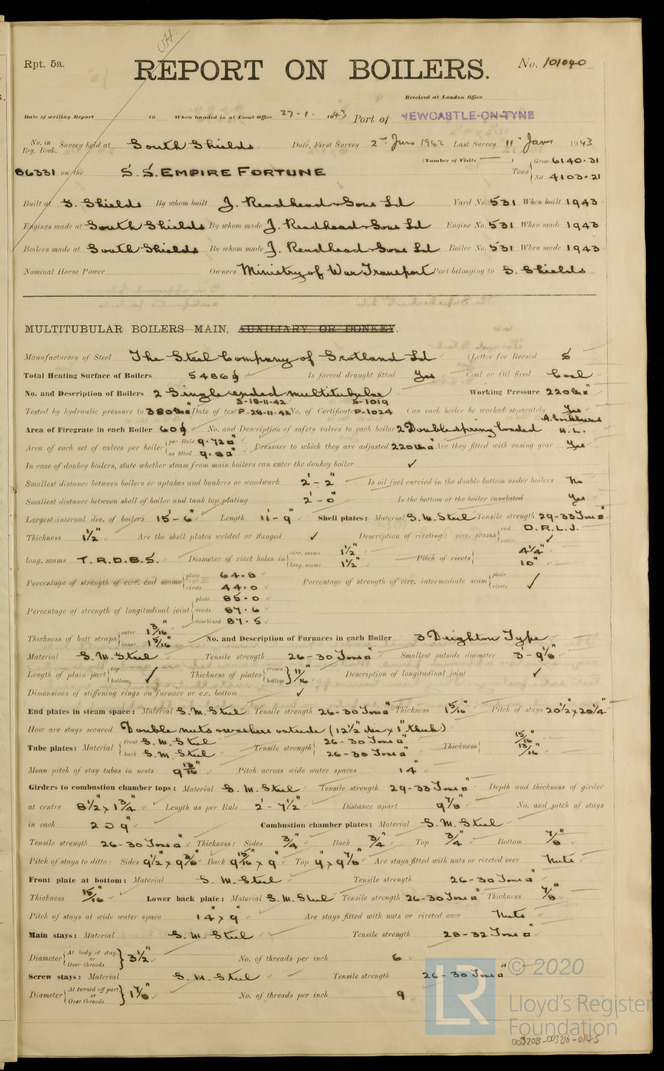 Rpt. 5a.
REPORT ON BOILERS.
No. 101040
Received at London Office
Date of writing Report 19 When handed in at Local Office 27.1.1943 Port of NEWCASTLE-ON-TYNE
No. in Reg. Book. Survey held at South Shields Date, First Survey 2nd June 1942 Last Survey 11 Jany 1943
(Number of Visits )
86331 on the S.S. EMPIRE FORTUNE Tons Gross 6140.31 Net 4103.21
Built at S. Shields By whom built J. Readhead & Sons Ld Yard No. 531 When built 1943
Engines made at South Shields By whom made J. Readhead & Sons Ld Engine No. 531 When made 1943
Boilers made at South Shields By whom made J. Readhead & Sons Ld Boiler No. 531 When made 1943
Nominal Horse Power Owners Ministry of War Transport Port belonging to S. Shields
MULTITUBULAR BOILERS MAIN, AUXILIARY, OR DONKEY.
Manufacturers of Steel The Steel Company of Scotland Ld (Letter for Record S
Total Heating Surface of Boilers 5486 Is forced draught fitted Yes Coal or Oil fired Coal
No. and Description of Boilers 2 Single ended multitubular Working Pressure 220
S-18-11-42 S-1019
Tested by hydraulic pressure to 380 Date of test P.28-11-42 No. of Certificate P-1024 Can each boiler be worked separately Yes
Area of Firegrate in each Boiler 60 No. and Description of safety valves to each boiler 2 Double spring loaded H.L.
Area of each set of valves per boiler per Rule 9.72 as fitted 9.82 Pressure to which they are adjusted 220 Are they fitted with easing gear Yes
In case of donkey boilers, state whether steam from main boilers can enter the donkey boiler ✓
Smallest distance between boilers or uptakes and bunkers or woodwork 2'-2" Is oil fuel carried in the double bottom under boilers No
Smallest distance between shell of boiler and tank top plating 2'-0" Is the bottom of the boiler insulated Yes
Largest internal dia. of boilers 15'-6" Length 11'-9" Shell plates: Material S.M.Steel Tensile strength 29-33 Tons
Thickness 1½" Are the shell plates welded or flanged ✓ Description of riveting: circ. seams end D.R.L.J. inter.
long. seams T.R.D.B.S. Diameter of rivet holes in circ. seams 1½" long. seams 1½" Pitch of rivets 4¼" 10"
Percentage of strength of circ. end seams plate 64.8 rivets 44.0 Percentage of strength of circ. intermediate seam plate rivets ✓
Percentage of strength of longitudinal joint plate 85.0 rivets 87.6 combined 87.5
Thickness of butt straps outer 1 3/16" inner 1 5/16" No. and Description of Furnaces in each Boiler 3 Deighton Type
Material S.M.Steel Tensile strength 26-30 Tons Smallest outside diameter 3'-9⅛"
Length of plain part bottom ✓ Thickness of plates crown bottom 11/16" Description of longitudinal joint ✓
Dimensions of stiffening rings on furnace or c.c. bottom ✓
End plates in steam space: Material S.M.Steel Tensile strength 26-30 Tons Thickness 1 5/16" Pitch of stays 20½"x20¼"
How are stays secured Double nuts & washers outside (12½" dia x 1" thick)
Tube plates: Material front S.M.Steel back S.M.Steel Tensile strength 26-30 Tons 26-30 Tons Thickness 15/16" 13/16"
Mean pitch of stay tubes in nests 9 13/16" Pitch across wide water spaces 14"
Girders to combustion chamber tops: Material S.M.Steel Tensile strength 29-33 Tons Depth and thickness of girder
at centre 8½"x1¾" Length as per Rule 2'-7½" Distance apart 9⅞" No. and pitch of stays
in each 2 @ 9" Combustion chamber plates: Material S.M.Steel
Tensile strength 26-30 Tons Thickness: Sides ¾" Back ¾" Top ¾" Bottom ⅞"
Pitch of stays to ditto: Sides 9½"x9⅜" Back 9 15/16"x9" Top 9"x9⅞" Are stays fitted with nuts or riveted over Nuts
Front plate at bottom: Material S.M.Steel Tensile strength 26-30 Tons
Thickness 15/16" Lower back plate: Material S.M.Steel Tensile strength 26-30 Tons Thickness ⅞"
Pitch of stays at wide water space 14"x9" Are stays fitted with nuts or riveted over Nuts
Main stays: Material S.M.Steel Tensile strength 28-32 Tons
Diameter At body of stay or Over threads 3½" No. of threads per inch 6
Screw stays: Material S.M.Steel Tensile strength 26-30 Tons
Diameter At turned off part or Over threads 1⅞" No. of threads per inch 9
LR © 2020
Lloyd's Register
Foundation
003208-003216-0145